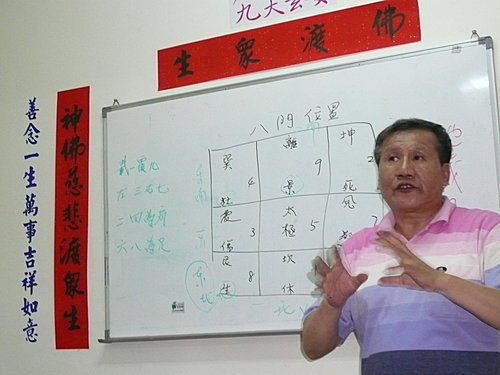 九天玄
生眾渡佛
善念一生萬事吉祥如意
神佛慈悲渡眾生
八門位置
戴一履九
左三右七
二四為肩
六八為足
東南
東
東北
北
巽 4
離 9 景
坤 2 死
震 3 傷
太極 5
艮 8 生
坎 休